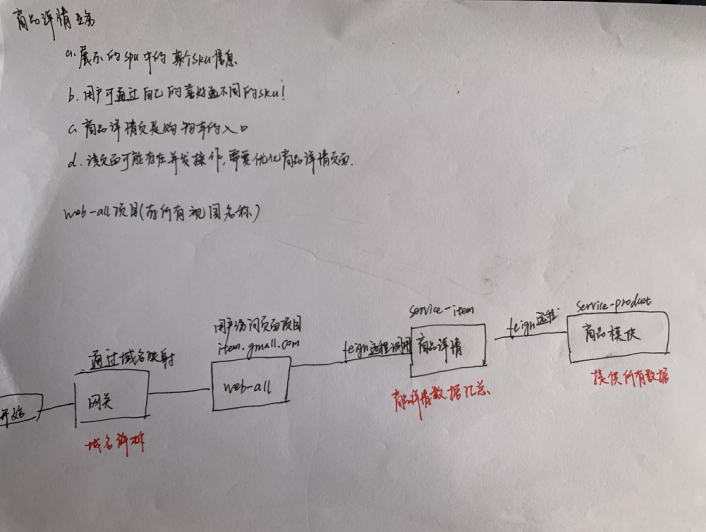 商品详情业务
a. 展示的spu中的某个sku信息
b. 用户可通过自己的喜好选不同的sku!
c. 商品详情页是购物车的入口
d. 该页面可能存在并发操作,需要优化商品详情页面.
web-all项目(存所有视图名称)
开始
通过域名映射
网关
域名解析
用户访问页面项目
item.gmall.com
web-all
feign远程调用
service-item
商品详情
商品详情数据汇总
feign远程
service-product
商品模块
提供所有数据